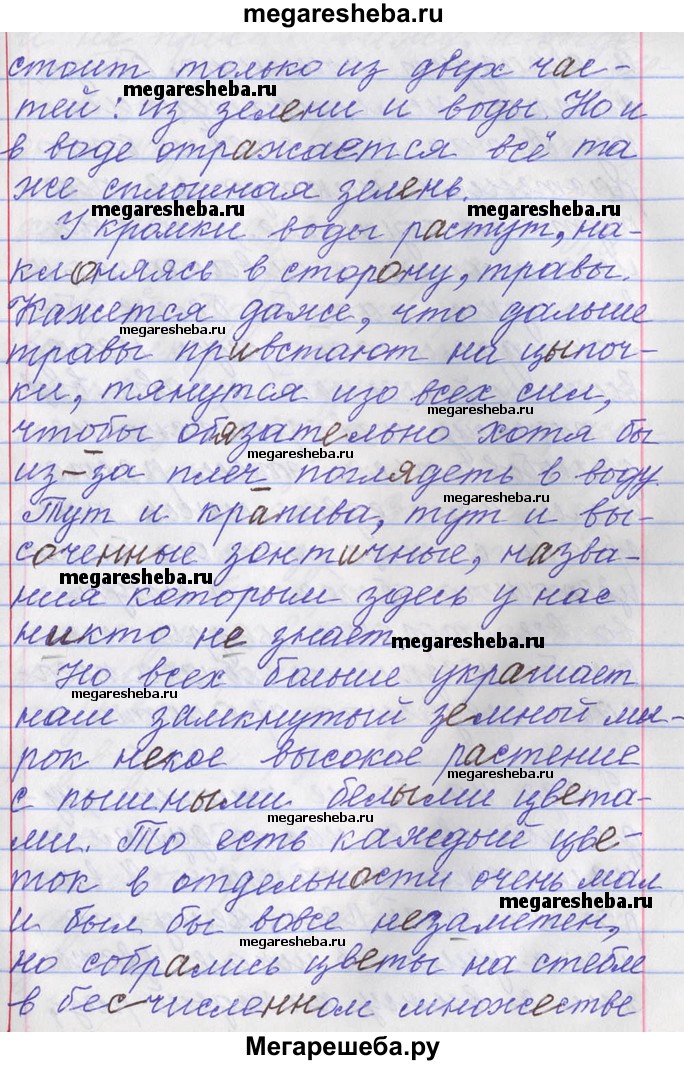 megaresheba.ru
стоит только из двух час-
megaresheba.ru
тей: из зелени и воды. Но и
в воде отражается всё та
же сплошная зелень.
megaresheba.ru
megaresheba.ru
У кромки воды растут, на-
клоняясь в сторону, травы.
Кажется даже, что дальше
megaresheba.ru
травы привстают на цыпоч-
ки, тянутся изо всех сил,
megaresheba.ru
чтобы обязательно хотя бы
из-за плеч поглядеть в воду.
megaresheba.ru
Тут и крапива, тут и вы-
соченные зонтичные, назва-
megaresheba.ru
ния которым здесь у нас
никто не знает.
megaresheba.ru
Но всех больше украшает
megaresheba.ru
наш замкнутый земной ми-
рок некое высокое растение
megaresheba.ru
с пышными белыми цвета-
ми. То есть каждый цве-
ток в отдельности очень мал
megaresheba.ru
и был бы вовсе незаметен,
megaresheba.ru
но собрались цветы на стебле
в бесчисленном множестве
Мегарешеба.ру